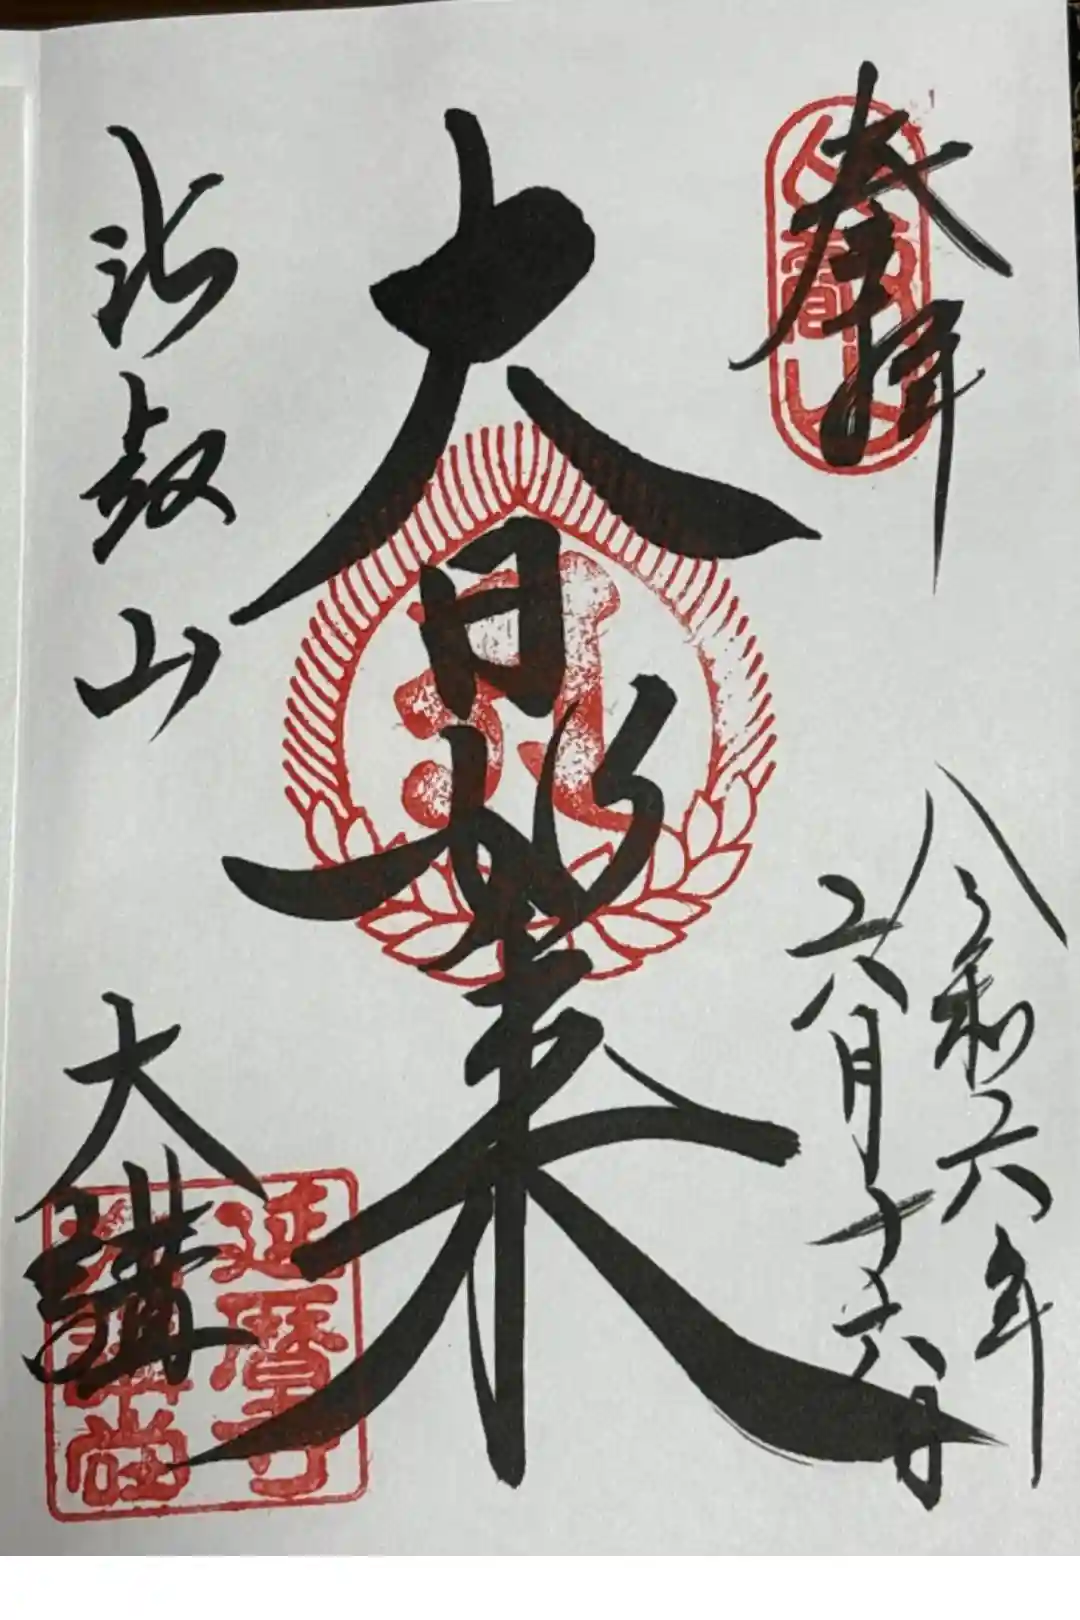 奉拝
令和六年
六月十六日
大日如来
比叡山
大講
比叡山
延暦寺
大講堂